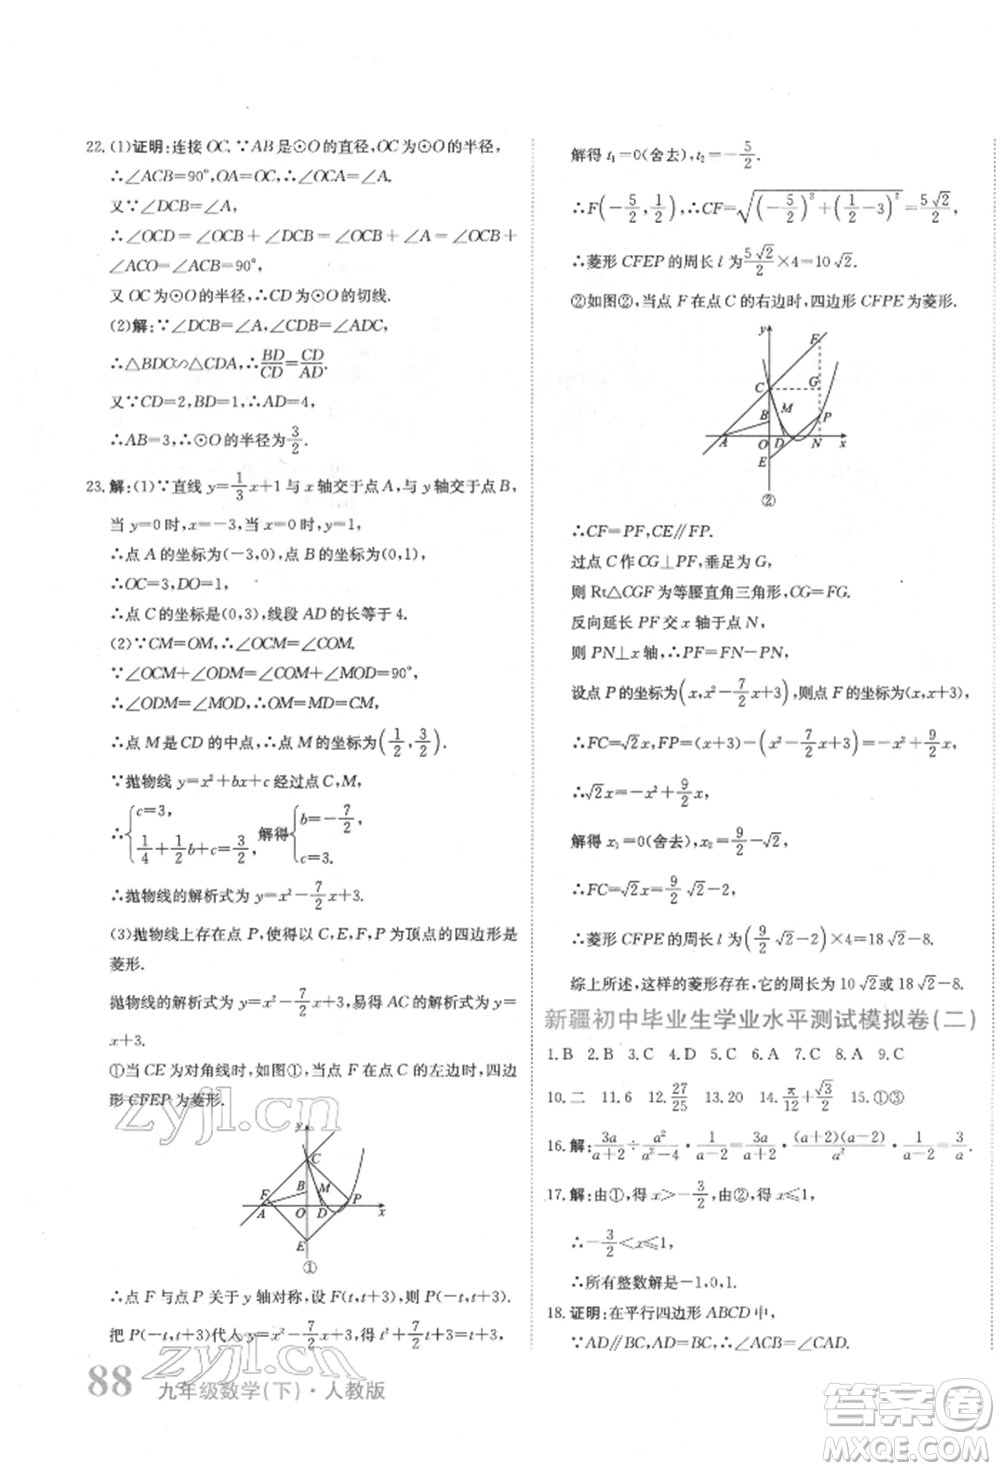 22. (1)证明:连接 OC.∵AB 是⊙O 的直径,OC 是⊙O 的半径,
∴∠ACB=90°,OA=OC.
又∵∠DCB=∠A,
∴∠OCD=∠OCB+∠DCB=∠OCB+∠A=∠OCB+
∠ACO=∠ACB=90°,
又 OC 为⊙O 的半径,∴CD 为⊙O 的切线.
(2)解:∵∠DCB=∠A,∠CDB=∠ADC,
∴△BDC∽△CDA,∴BD/CD=CD/AD.
又∵CD=2,BD=1,∴AD=4,
∴AB=3,∴⊙O 的半径为 3/2.
23. 解:(1)∵直线 y=1/3x+1 与 x 轴交于点 A,与 y 轴交于点 B,
当 y=0 时,x=-3,当 x=0 时,y=1,
∴点 A 的坐标为(-3,0),点 B 的坐标为(0,1),
∴OC=3,DO=1,
∴点 C 的坐标为(0,3),线段 AD 的长等于 4.
(2)∵CM=OM,∴∠OCM=∠COM.
∵∠OCM+∠ODM=∠COM+∠MOD=90°,
∴∠ODM=∠MOD,∴OM=MD=CM,
∴点 M 是 CD 的中点,∴点 M 的坐标为(1/2,3/2).
∵抛物线 y=x²+bx+c 经过点 C,M,
∴{c=3, 1/4+1/2b+c=3/2, 解得{b=-7/2, c=3.
∴抛物线的解析式为 y=x²-7/2x+3.
(3)抛物线上存在点 P,使得以 C,E,F,P 为顶点的四边形是
菱形.
抛物线的解析式为 y=x²-7/2x+3,易得 AC 的解析式为 y=
x+3.
①当 CE 为对角线时,如图①,当点 F 在点 C 的左边时,四边
形 CFEP 为菱形.
y
C
F
B
M
P
A
O
D
x
E
①
∴点 F 与点 P 关于 y 轴对称,设 F(t,t+3),则点 P(-t,t+3).
把 P(-t,t+3)代入 y=x²-7/2x+3,得 t²+7/2t+3=t+3,
88 九年级数学(下)·人教版
解得 t₁=0(舍去),t₂=-5/2.
∴F(-5/2,1/2),∴CF=√((-5/2)²+(1/2-3)²)=5√2/2,
∴菱形 CFEP 的周长 l 为 5√2/2×4=10√2.
②如图②,当点 F 在点 C 的右边时,四边形 CFPE 为菱形.
y
F
C
G
B
M
P
A
O
D
N
x
E
②
∴CF=PF,CE∥FP.
过点 C 作 CG⊥PF,垂足为 G,
则 Rt△CGF 为等腰直角三角形,
反向延长 PF 交 x 轴于点 N,
则 PN⊥x 轴,∴PF=FN-PN,
设点 P 的坐标为(x,x²-7/2x+3),则点 F 的坐标为(x,x+3),
∴FC=√2x,PF=(x+3)-(x²-7/2x+3)=-x²+9/2x,
∴√2x=-x²+9/2x,
解得 x₁=0(舍去),x₂=9/2-√2,
∴FC=√2x=9/2√2-2,
∴菱形 CFPE 的周长 l 为(9/2√2-2)×4=18√2-8.
综上所述,这样的菱形存在,它的周长为 10√2 或 18√2-8.
新疆初中毕业生学业水平测试模拟卷(二)
1. B 2. B 3. C 4. D 5. C 6. A 7. C 8. A 9. C
10. 二 11. 6 12. 27/25 13. 20 14. π/12+√3/2 15. ①③
16. 解:3a/(a+2)÷a²/(a²-4)·1/(a-2)=3a/(a+2)·(a+2)(a-2)/a²·1/(a-2)=3/a.
17. 解:由①,得 x>-3/2,由②,得 x≤1,
∴-3/2<x≤1,
∴所有整数解是-1,0,1.
18. 证明:在平行四边形 ABCD 中,
∵AD∥BC,AD=BC,∴∠ACB=∠CAD.
zyjl.cn
zyjl.cn
答案圈
MXQE.COM